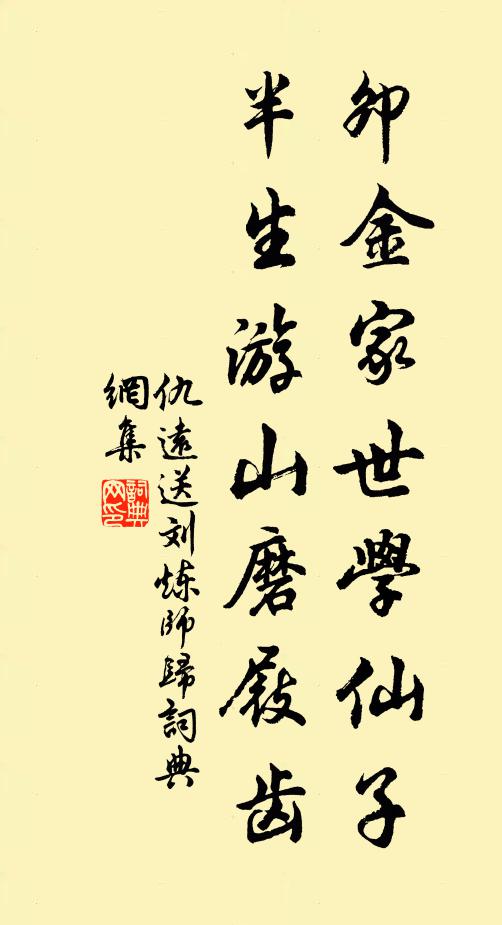 卯金家世學仙子
半生游山磨屐齿
仇遠送刘炼师歸詞典
網集
詞典
网印